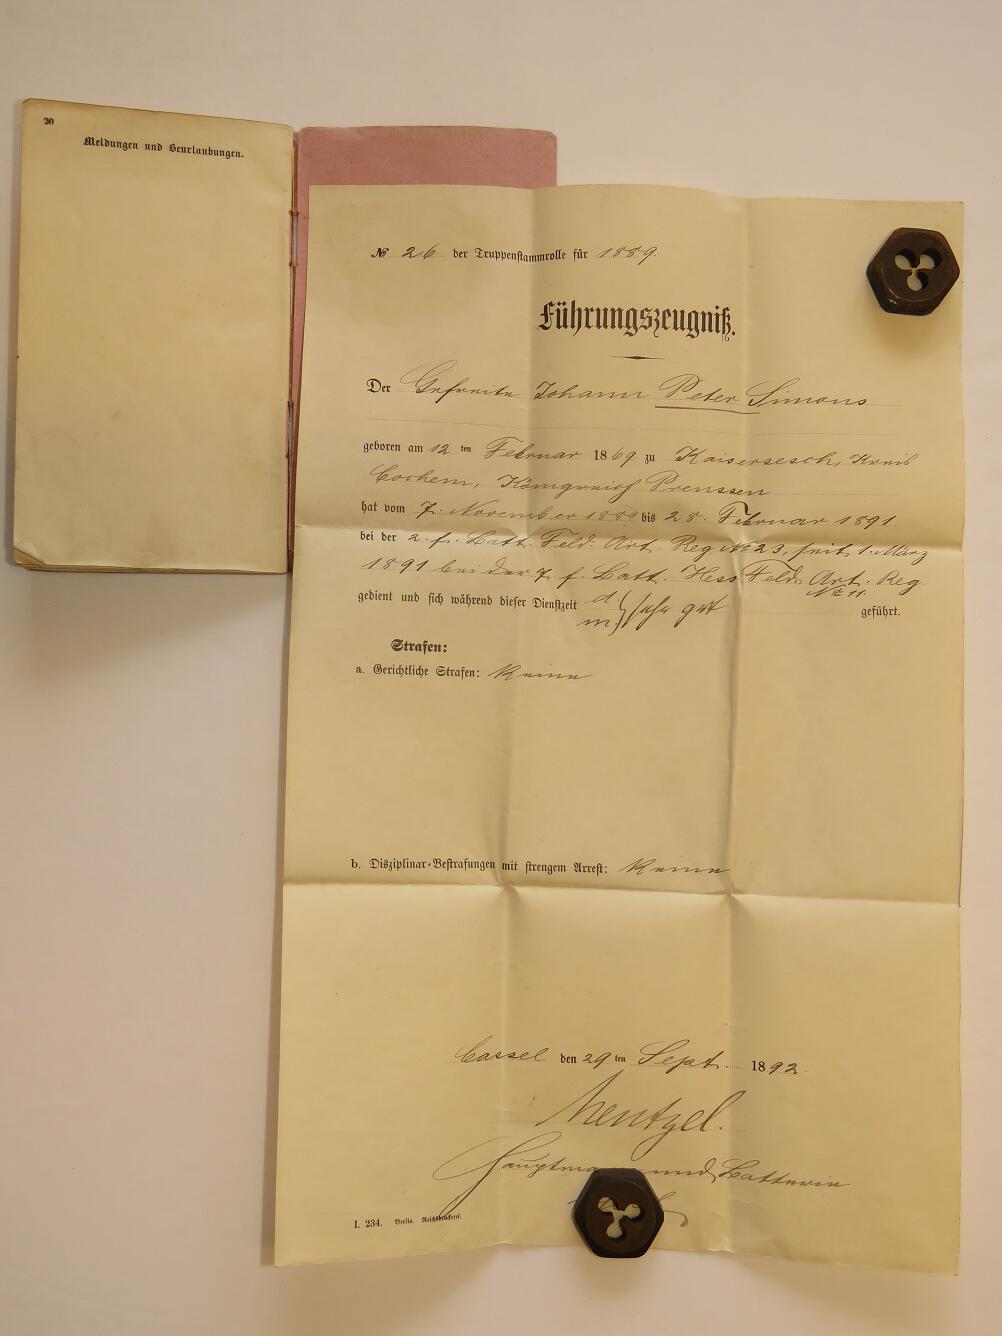 20
Meldungen und Beurlaubungen.
№ 26 der Truppenstammrolle für 1889.
Führungszeugniß.
Der Gefreite Johann Peter Simons
geboren am 12 ten Februar 1869 zu Kaisersesch, Kreis
Cochem, Königreich Preussen
hat vom 7. November 1889 bis 28. Februar 1891
bei der 2. f. Batt. Feld. Art. Reg № 23, seit 1. März
1891 bei der 7. f. Batt. Hess. Feld. Art. Reg.
№ 11.
gedient und sich während dieser Dienstzeit d. m. sehr gut geführt.
Strafen:
a. Gerichtliche Strafen: Keine
b. Disziplinar-Bestrafungen mit strengem Arrest: Keine
Cassel den 29 ten Sept. 1892.
Mentzel.
Hauptmann und Batterie
I. 234. Berlin. Reichsdruckerei.